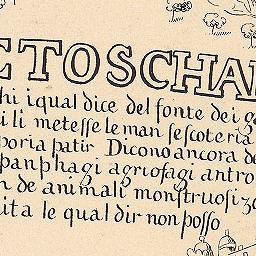 ETOSCHA
hi i qual dice del fonte de i ga
i li metesse le man se scoteria
poria patir Dicono ancora de
panphagi agriofagi antro
n de animali monstruosi
ita le qual dir non posso